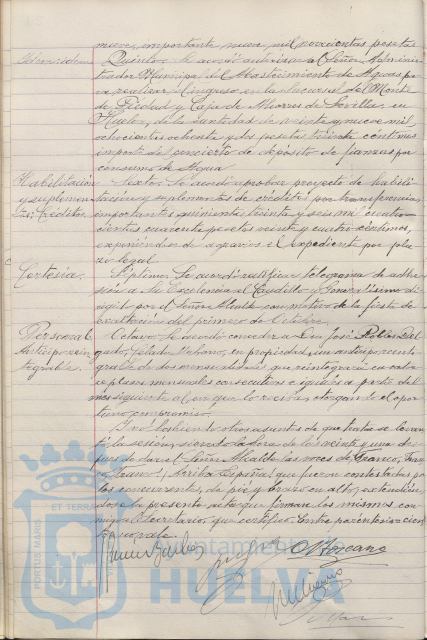 nueve, importante nueve mil novecientas pesetas
Idem idem Quinto: Se acordó autorizar al Señor Adminis-
trador Municipal del Abastecimiento de Aguas pa-
ra realizar el ingreso en la Sucursal del Monte
de Piedad y Caja de Ahorros de Sevilla, en
Huelva, de la cantidad de veinte y nueve mil
ochocientas ochenta y dos pesetas treinta céntimos
importe del concierto de depósito de fianzas por
consumo de Agua.
Habilitación y suplemen- tos; Creditos. Sexto: Se acordó aprobar proyecto de habili-
tación y suplementos de créditos por transferencias,
importantes quinientas treinta y seis mil cuatro-
cientas cuarenta pesetas veinte y cuatro céntimos,
exponiéndose de agravios el expediente por pla-
zo legal.
Cortesía. Séptimo: Se acordó ratificar telegrama de adhe-
sión a Su Excelencia el Caudillo y Generalísimo di-
rigido por el Señor Alcalde con motivo de la fiesta de
exaltación del primero de Octubre.
Personal. Anticipo rein- tegrable. Octavo: Se acordó conceder a Don José Robles Del-
gado, Celador Urbano, en propiedad, un anticipo reinte-
grable de dos mensualidades que reintegrará en cator-
ce plazos mensuales consecutivos e iguales a partir del
mes siguiente al en que lo reciba, otorgando el opor-
tuno compromiso.
Y no habiendo otros asuntos de que tratar se levan-
tó la sesión, siendo la hora de las veinte y una des-
pués de dar el Señor Alcalde las voces de Franco, Fran-
co, Franco! ¡Arriba España! que fueron contestadas por
los concurrentes, de pié y brazo en alto, extendién-
dose la presente acta que firman los mismos con-
migo el Secretario, que certifico. Entre paréntesis
ET TERRA
PORTUS MARIS
Ayuntamiento de
HUELVA